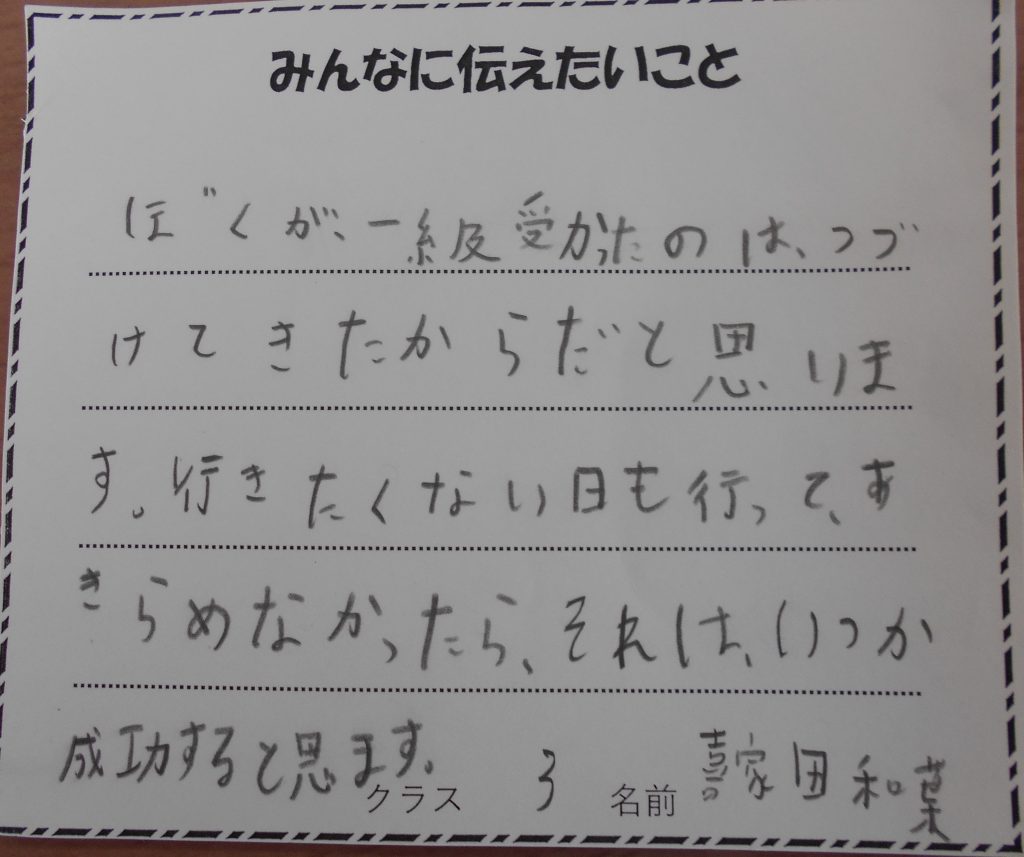 みんなに伝えたいこと
ぼくが、一級受かったのは、つづ
けてきたからだと思いま
す。行きたくない日も行って、あ
きらめなかったら、それは、いつか
成功すると思ます。
クラス 3 名前 喜家田和葉